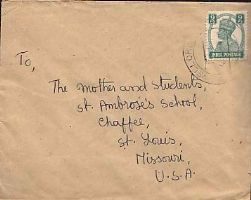 To,
The Mother and students,
St. Ambrose's School,
Chaffee,
St. Louis,
Missouri,
U.S.A.
INDIA POSTAGE